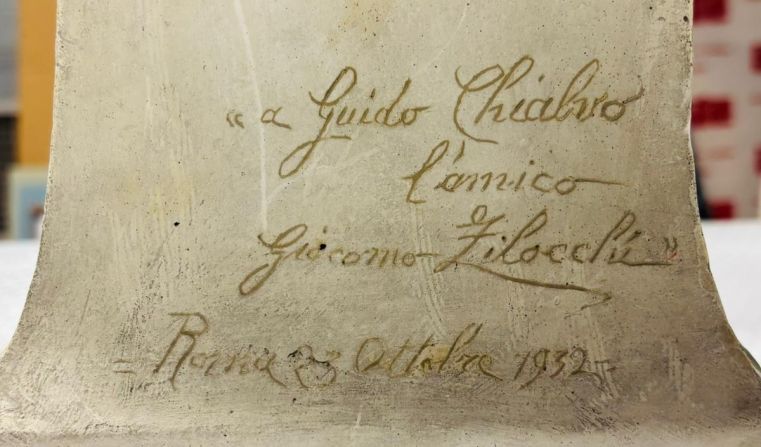 « a Guido Chialvo
l'amico
Giacomo Zilocchi »
= Roma 23 Ottobre 1932 =